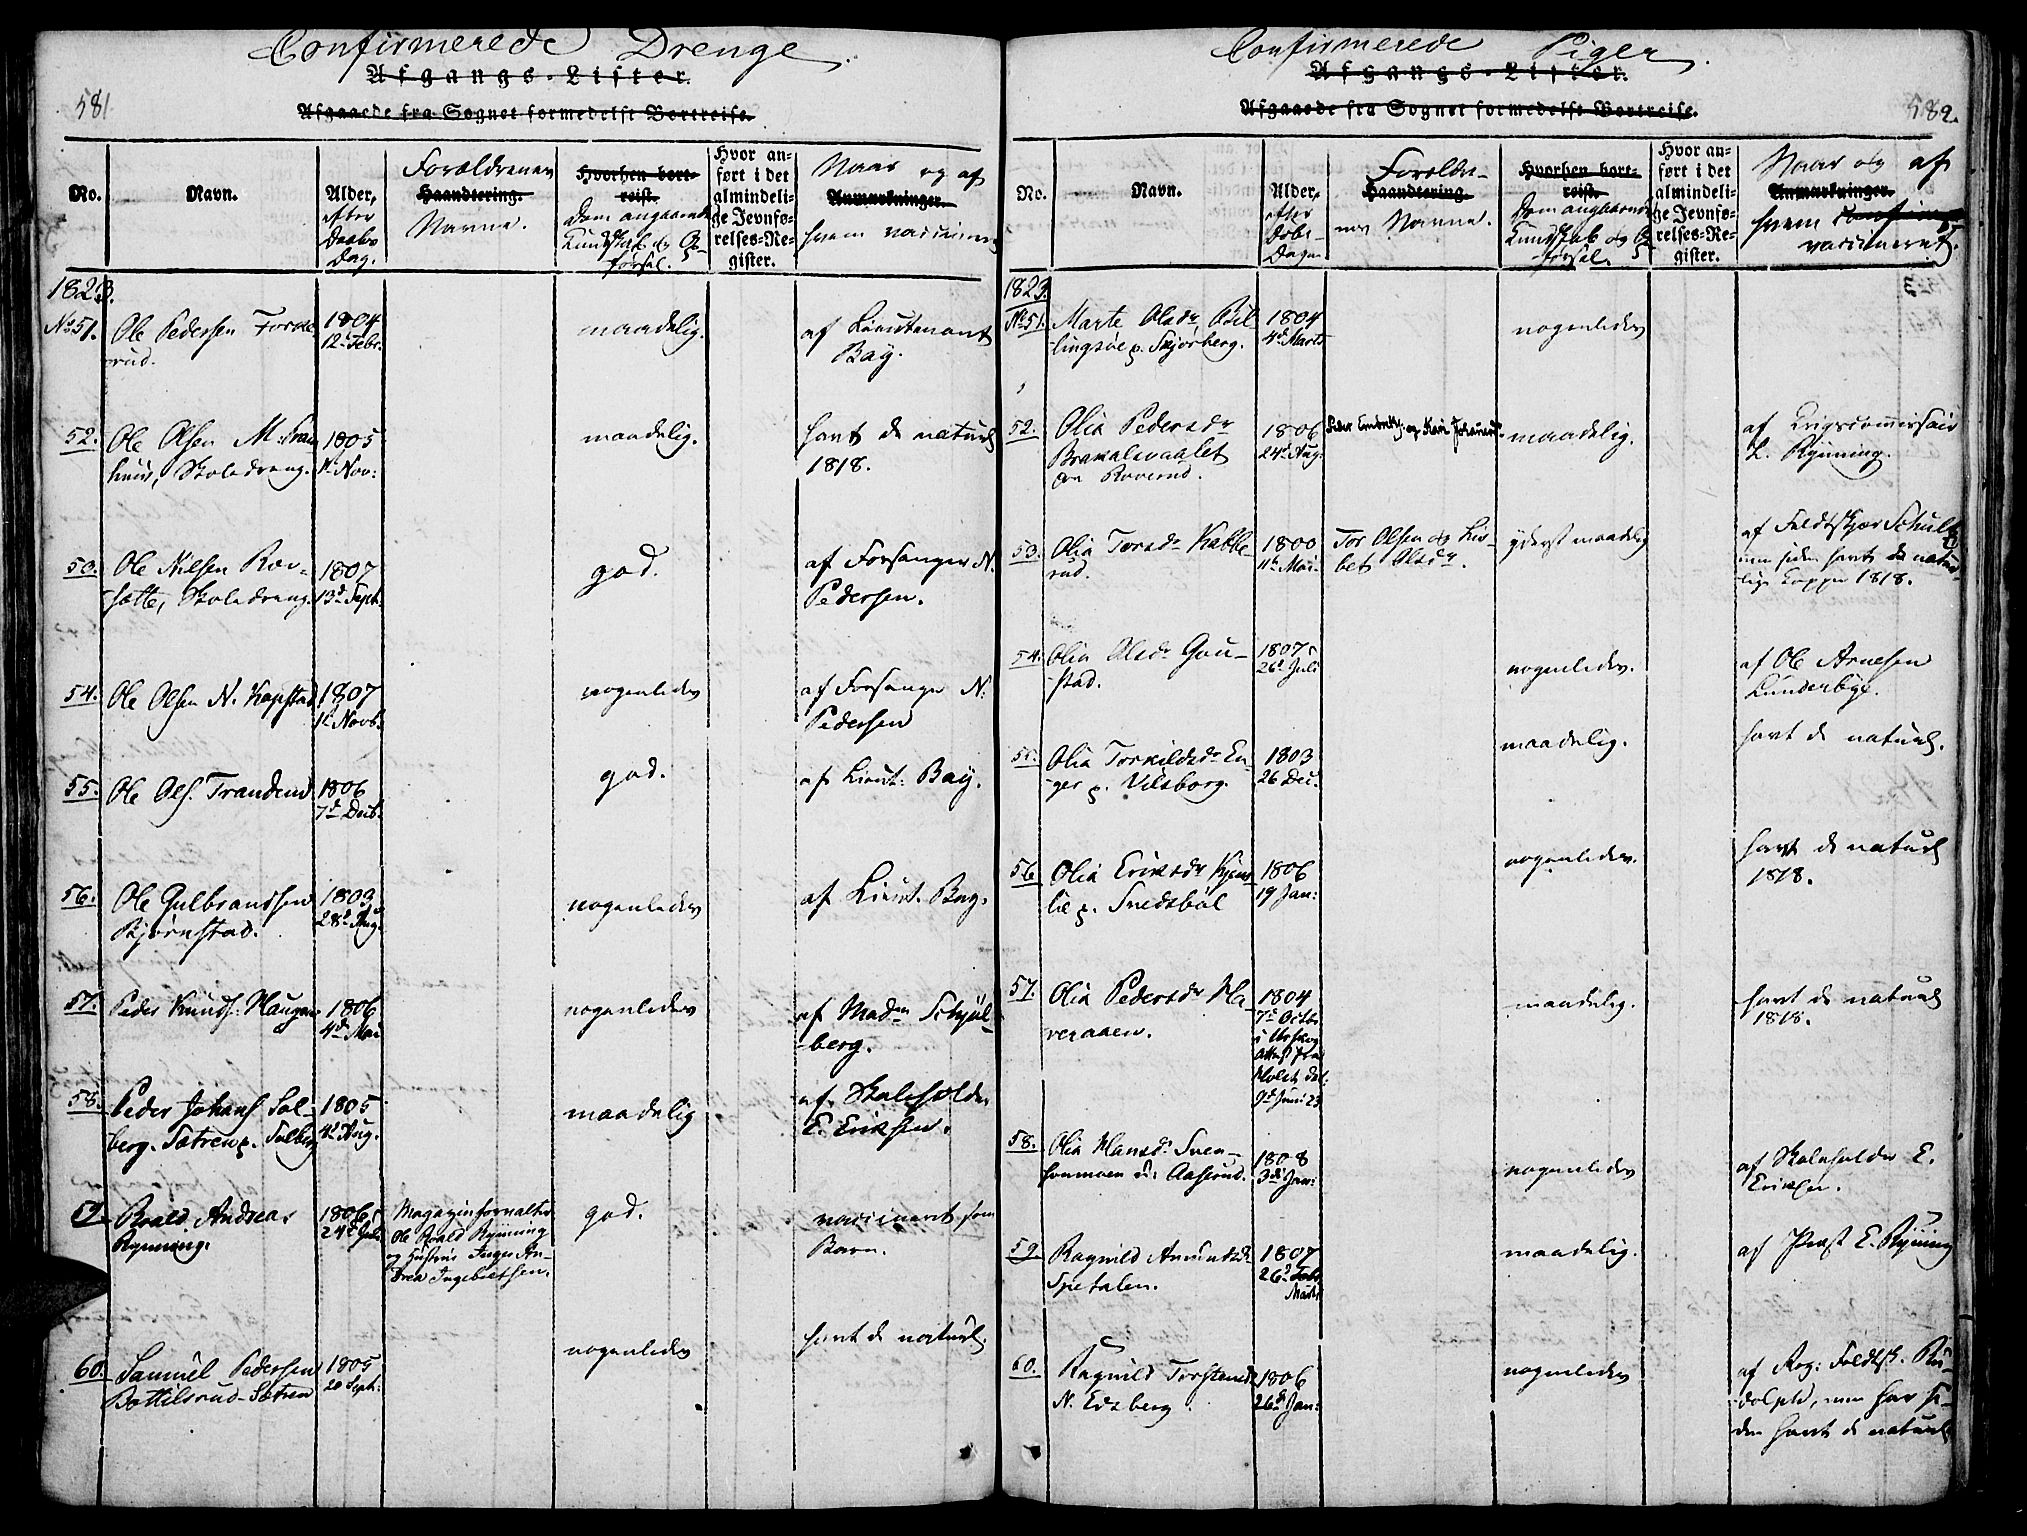 581
Confirmerede Drenge.
Afgangs-Lister.
Afgaaede fra Sognet formedelst Bortreise.
No.
Navn.
Alder,
efter
Daabs
Dag.
Forældrenes
Haandtering.
Navne.
Hvorhen bort-
reist.
Dom angaaende
Kundskab og Op-
førsel.
Hvor an-
ført i det
almindeli-
ge Jevnfø-
relses-Re-
gister.
Naar og af
Anmærkninger.
hvem vaccineret
1823.
No 51.
Ole Pedersen
rud.
1804
12 Febr.
maadelig.
af Lieutenant
Bay.
52.
Ole Olsen M.
huus, Skoledreng.
1805
1 Nov:
maadelig.
havt de naturl
1818.
53.
Ole Nilsen Rov-
Skoledreng.
1807
13d Sept.
god.
af Forsanger N.
Pedersen.
54.
Ole Olsen N. Kopstad
1807
1 Novb.
nogenledes
af Forsanger N.
Pedersen
55.
Ole Ols. Tranden
1806
7d Decb.
god.
af Lieut: Bay.
56.
Ole Gulbrandsen
Bjørnstad.
1803
28d Aug.
nogenledes
af Lieut. Bay.
57.
Peder Knuds. Haugen
1806
4de Mai
nogenledes
af Madm Schjøl-
berg.
58.
Peder Johans Sol-
berg. Sætren p. Solberg
1805
4d Aug.
maadelig
af Skoleholder
E. Eriksen.
59.
Roald Andreas
Rynning.
1806
24d Juli
Magazinforvalter
Ole Roald Rynning
og Hustru Inger An-
drea Ingebretsen.
god.
vaccineret som
Barn.
60.
Samuel Pedersen
Bottilsrud-Sætren
1805
20 Sept:
nogenledes
havt de naturl.
582.
Confirmerede Piger.
Afgangs-Lister.
Afgaaede fra Sognet formedelst Bortreise.
No.
Navn.
Alder,
efter
Dobs-
Dagen
Forældre-
Haandtering
nes Navne.
Hvorhen bort-
reist.
Dom angaaende
Kundskab og Op-
førsel.
Hvor an-
ført i det
almindeli-
ge Jevnfø-
relses-Re-
gister.
Naar og af
Anmærkninger.
hvem
vaccineret.
1823.
No 51.
Marte Olsdr Bil-
lingsøe p. Skjørberg.
1804
4d Marts
nogenledes
52.
Olia Pedersdr
Brakalsvaalet
Roverud.
1806
24d Aug.
Peder Embrets. og Kari Johansd
maadelig.
af Krigscommissair
L. Rynning.
53.
Olia Torsdr Kabbe-
rud.
1800
11te Mai
Tor Olsen og Lis-
bet Olsdr.
yderst maadelig
af Feldtskjær Schultz
men siden havt de natur-
lige Kopper 1818.
54.
Olia Olsdr Gou-
stad.
1807
26d Juli
nogenledes.
af Ole Arnesen
Lunderbye.
55.
Olia Torkildsdr En-
ger p. Vilsborg.
1803
26 Dec.
maadelig.
havt de naturl.
56.
Olia Eriksdr
lie p. Snedsbøl
1806
19 Jan:
nogenledes.
havt de naturl
1818.
57.
Olia Pedersdr Ha
veraaen.
1804
7d Octbr
i Urskog
Attest fra
Holst dat:
9d Juni 23
maadelig.
havt de naturl
1818.
58.
Olia Hansdr Sven-
Aaserud.
1808
3de Jan:
nogenledes
af Skoleholder E.
Eriksen.
59.
Ragnild Amundsdr
Spetalen.
1807
26d Febr
Marts
maadelig.
af Præst E. Rynning
60.
Ragnild Torstensdr
N. Edsberg.
1806
26d Jan:
nogenledes
af Reg: Feldtsk. Ru-
dolph, men har si-
den havt de naturl